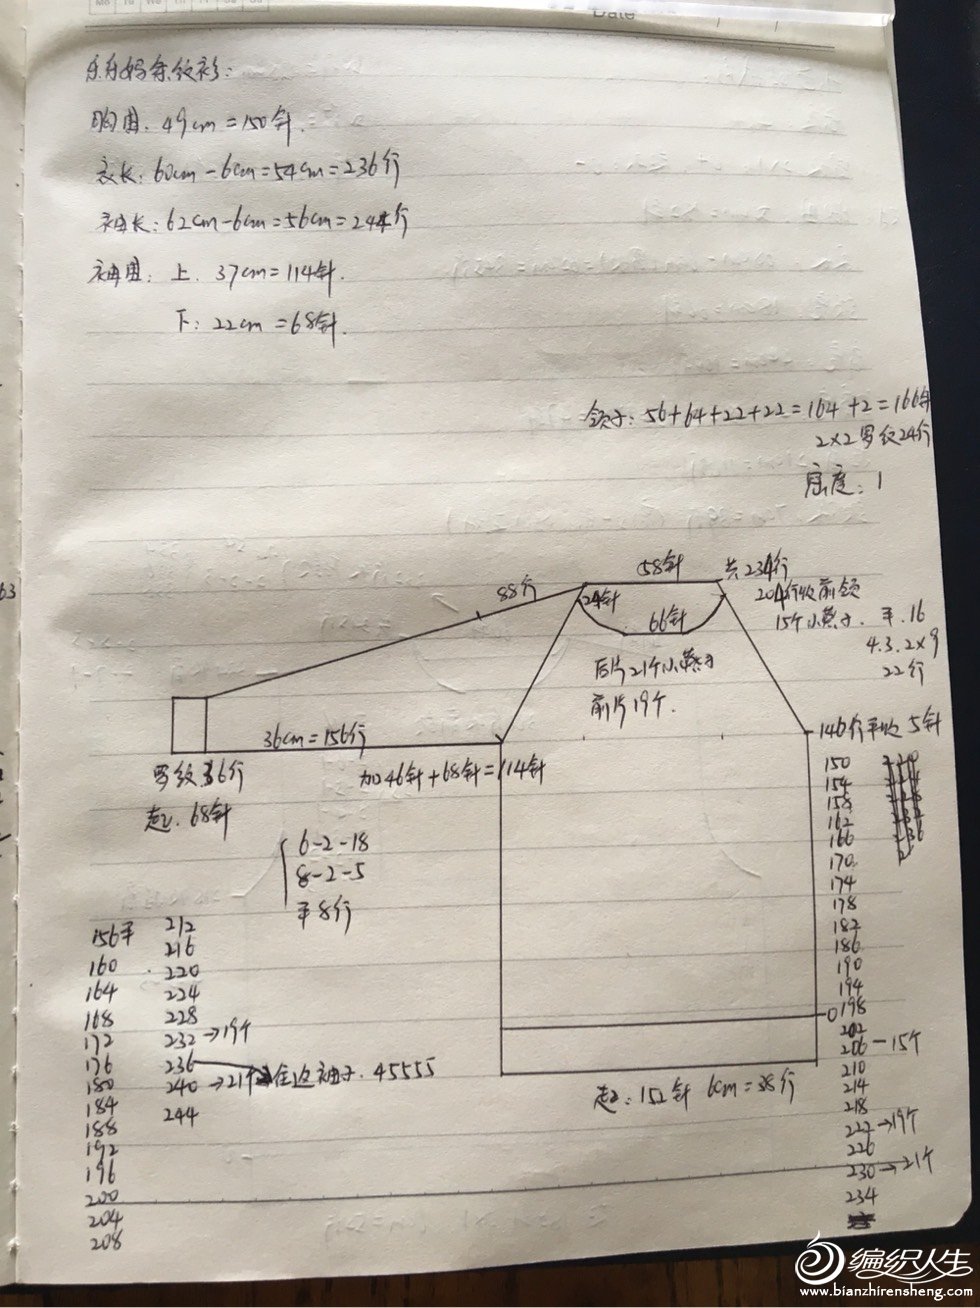 Date
乐乐妈条纹衫：
胸围：49cm=150针.
衣长：60cm-6cm=54cm=236行
袖长：62cm-6cm=56cm=244行
袖围：上. 37cm=114针.
下：22cm=68针.
领子：56+64+22+22=164+2=166针
2×2罗纹24行
密度：1
58针
共234行
88行
24针
204行收前领
66针
15个小燕子.
平.16
4.3.2×9
22行
后片21个小燕子
前片19个.
36cm=156行
146行平收5针
罗纹36行
加46针+68针=114针
起：68针
6-2-18
8-2-5
平8行
156平
160
164
168
172
176
180
184
188
192
196
200
204
208
212
216
220
224
228
232→19个
236
240→21个 住这袖子.45555
244
起：152针 6cm=38行
150
154
158
162
166
170
174
178
182
186
190
194
198
202
206—15个
210
214
218
222→19个
226
230→21个
234
63
编织人生
www.bianzhirensheng.com